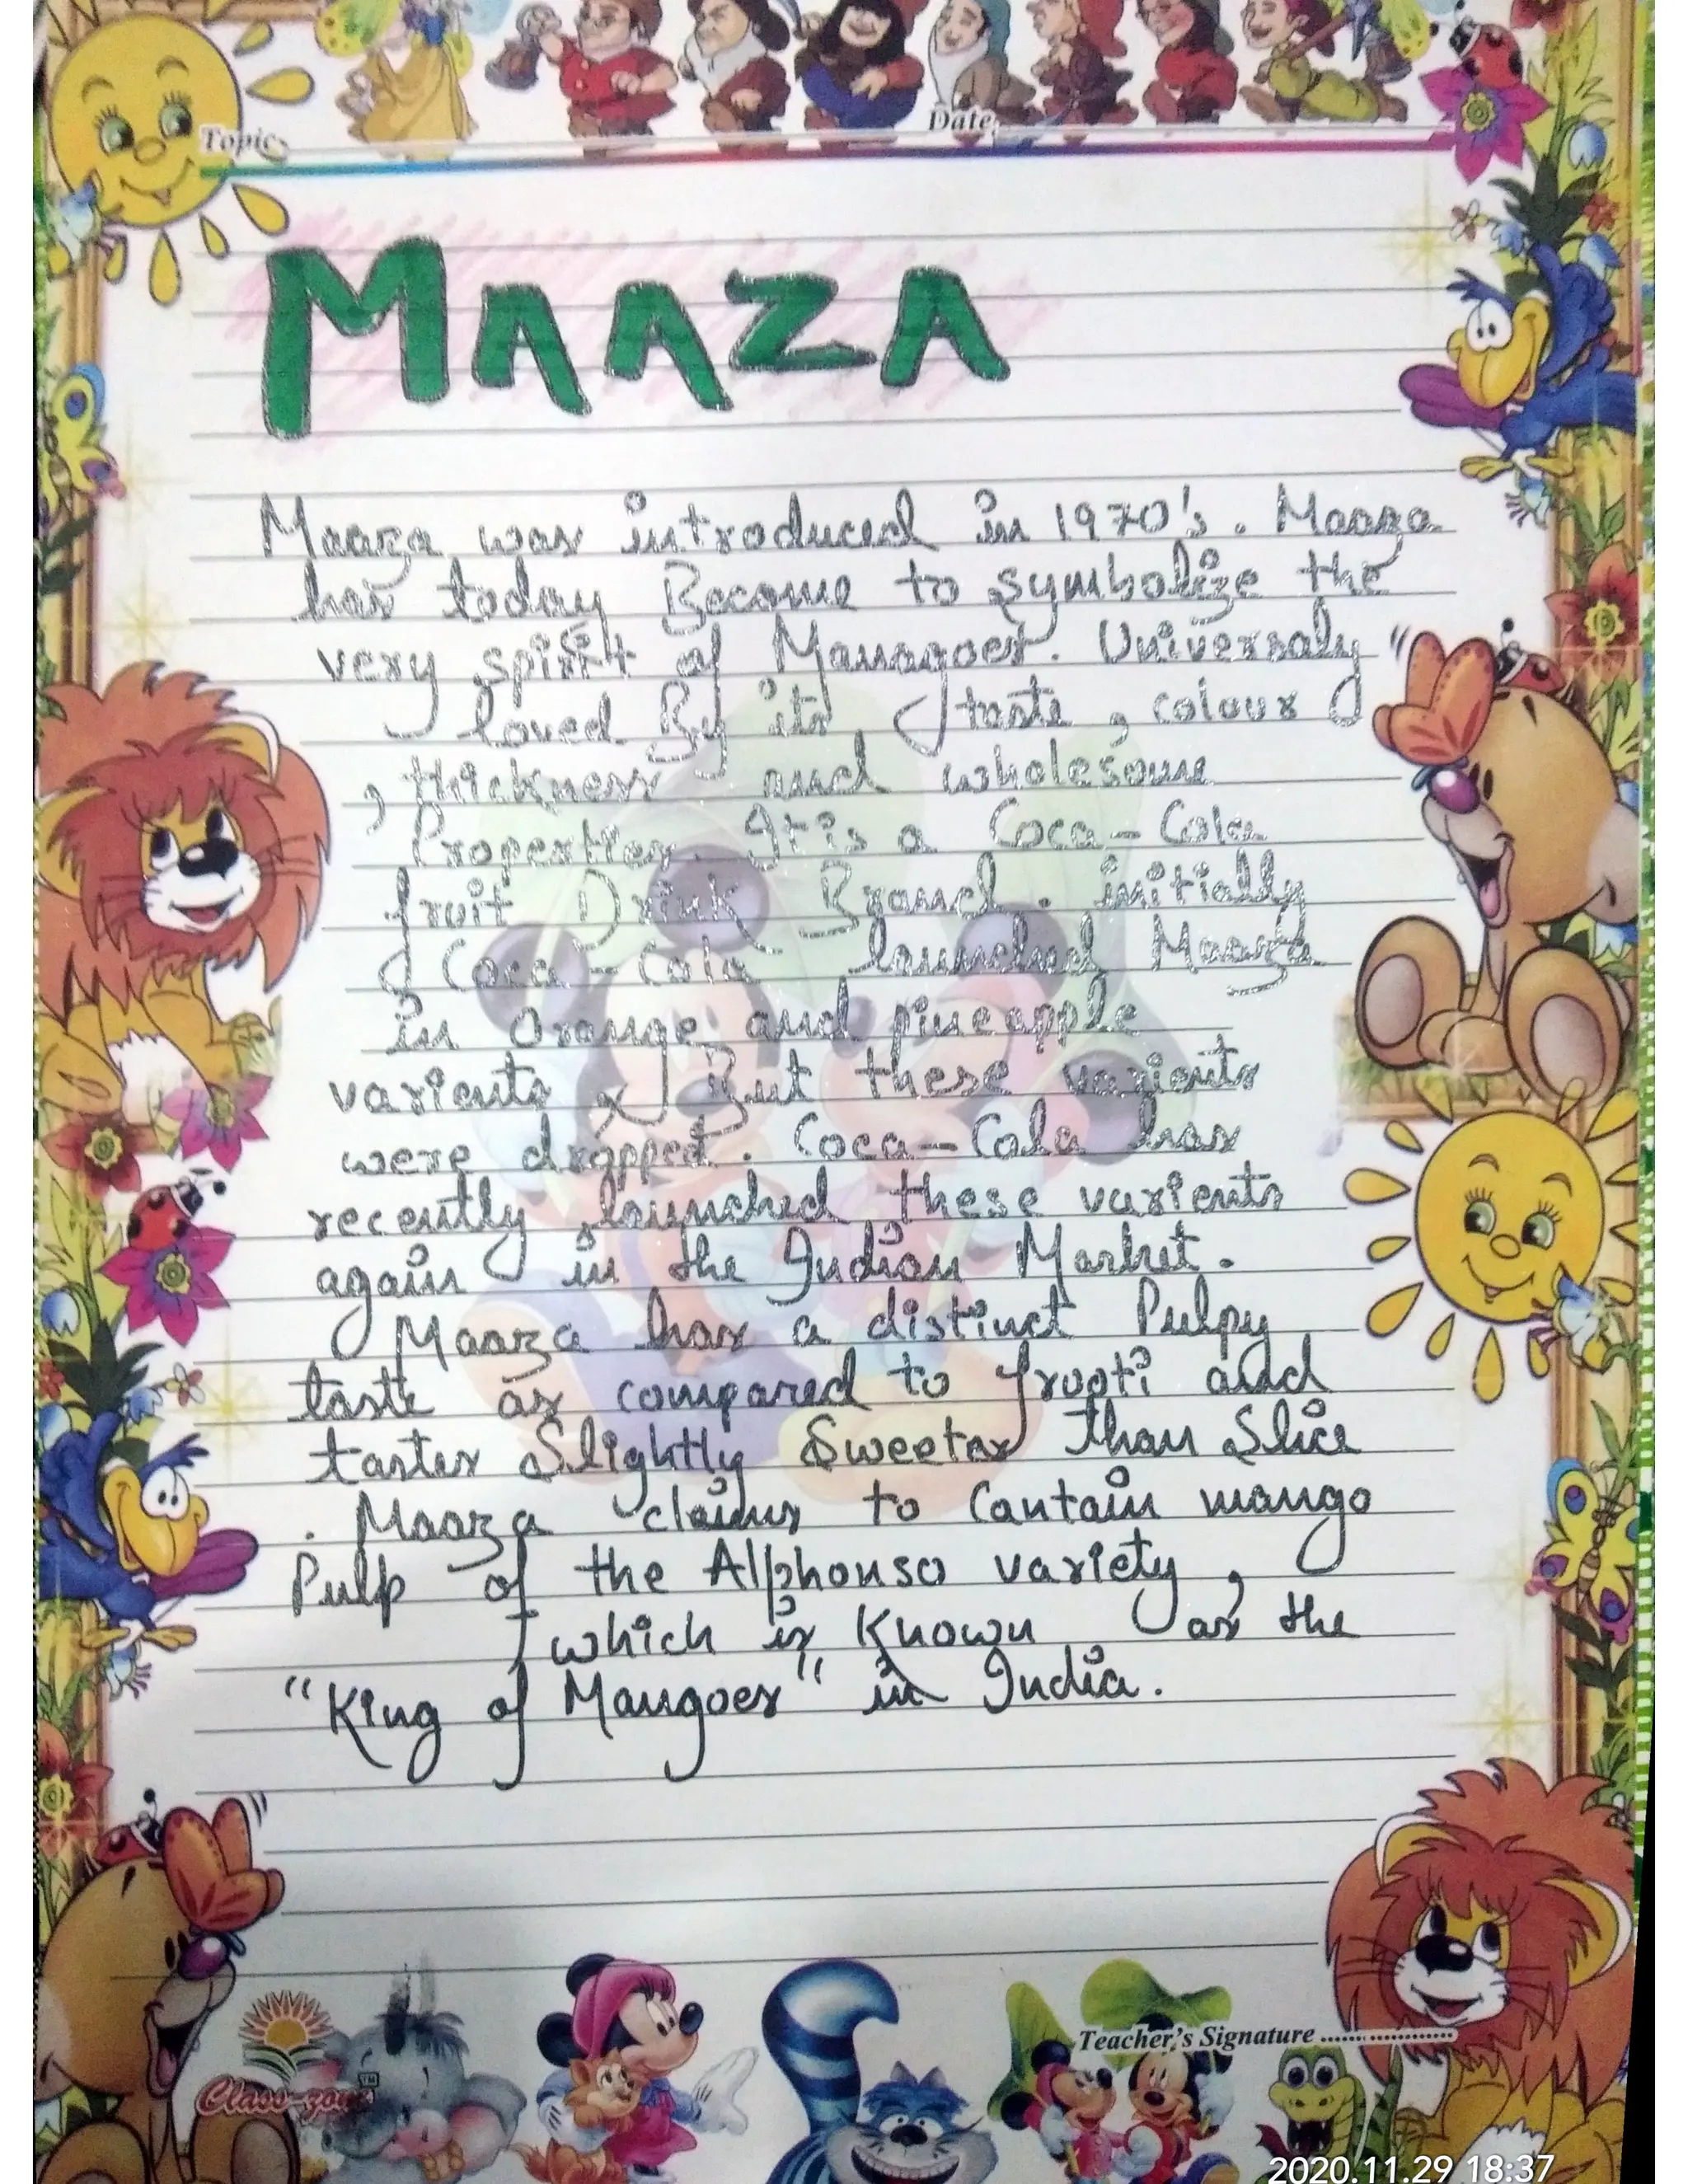 Topic
Date
MAAZA
Maaza was introduced in 1970's. Maaza
has today Become to symbolize the
very spirit of Manago​es. Universaly
loved By its taste, colour
, thickness and wholesome
Properties. It is a Coca-Cola
fruit Drink Brand. initially
Coca-Cola launched Maaza
in orange and pineapple
varients, But these varients
were dropped. Coca-Cola has
recently launched these varients
again in the Indian Market.
Maaza has a distinct Pulpy
taste as compared to frooti and
tastes Slightly Sweeter than Slice
. Maaza claims to Contain mango
Pulp of the Alphonso variety,
which is Known as the
"King of Mangoes" in India.
Teacher's Signature ...................
Class-zone TM
2020.11.29 18:37